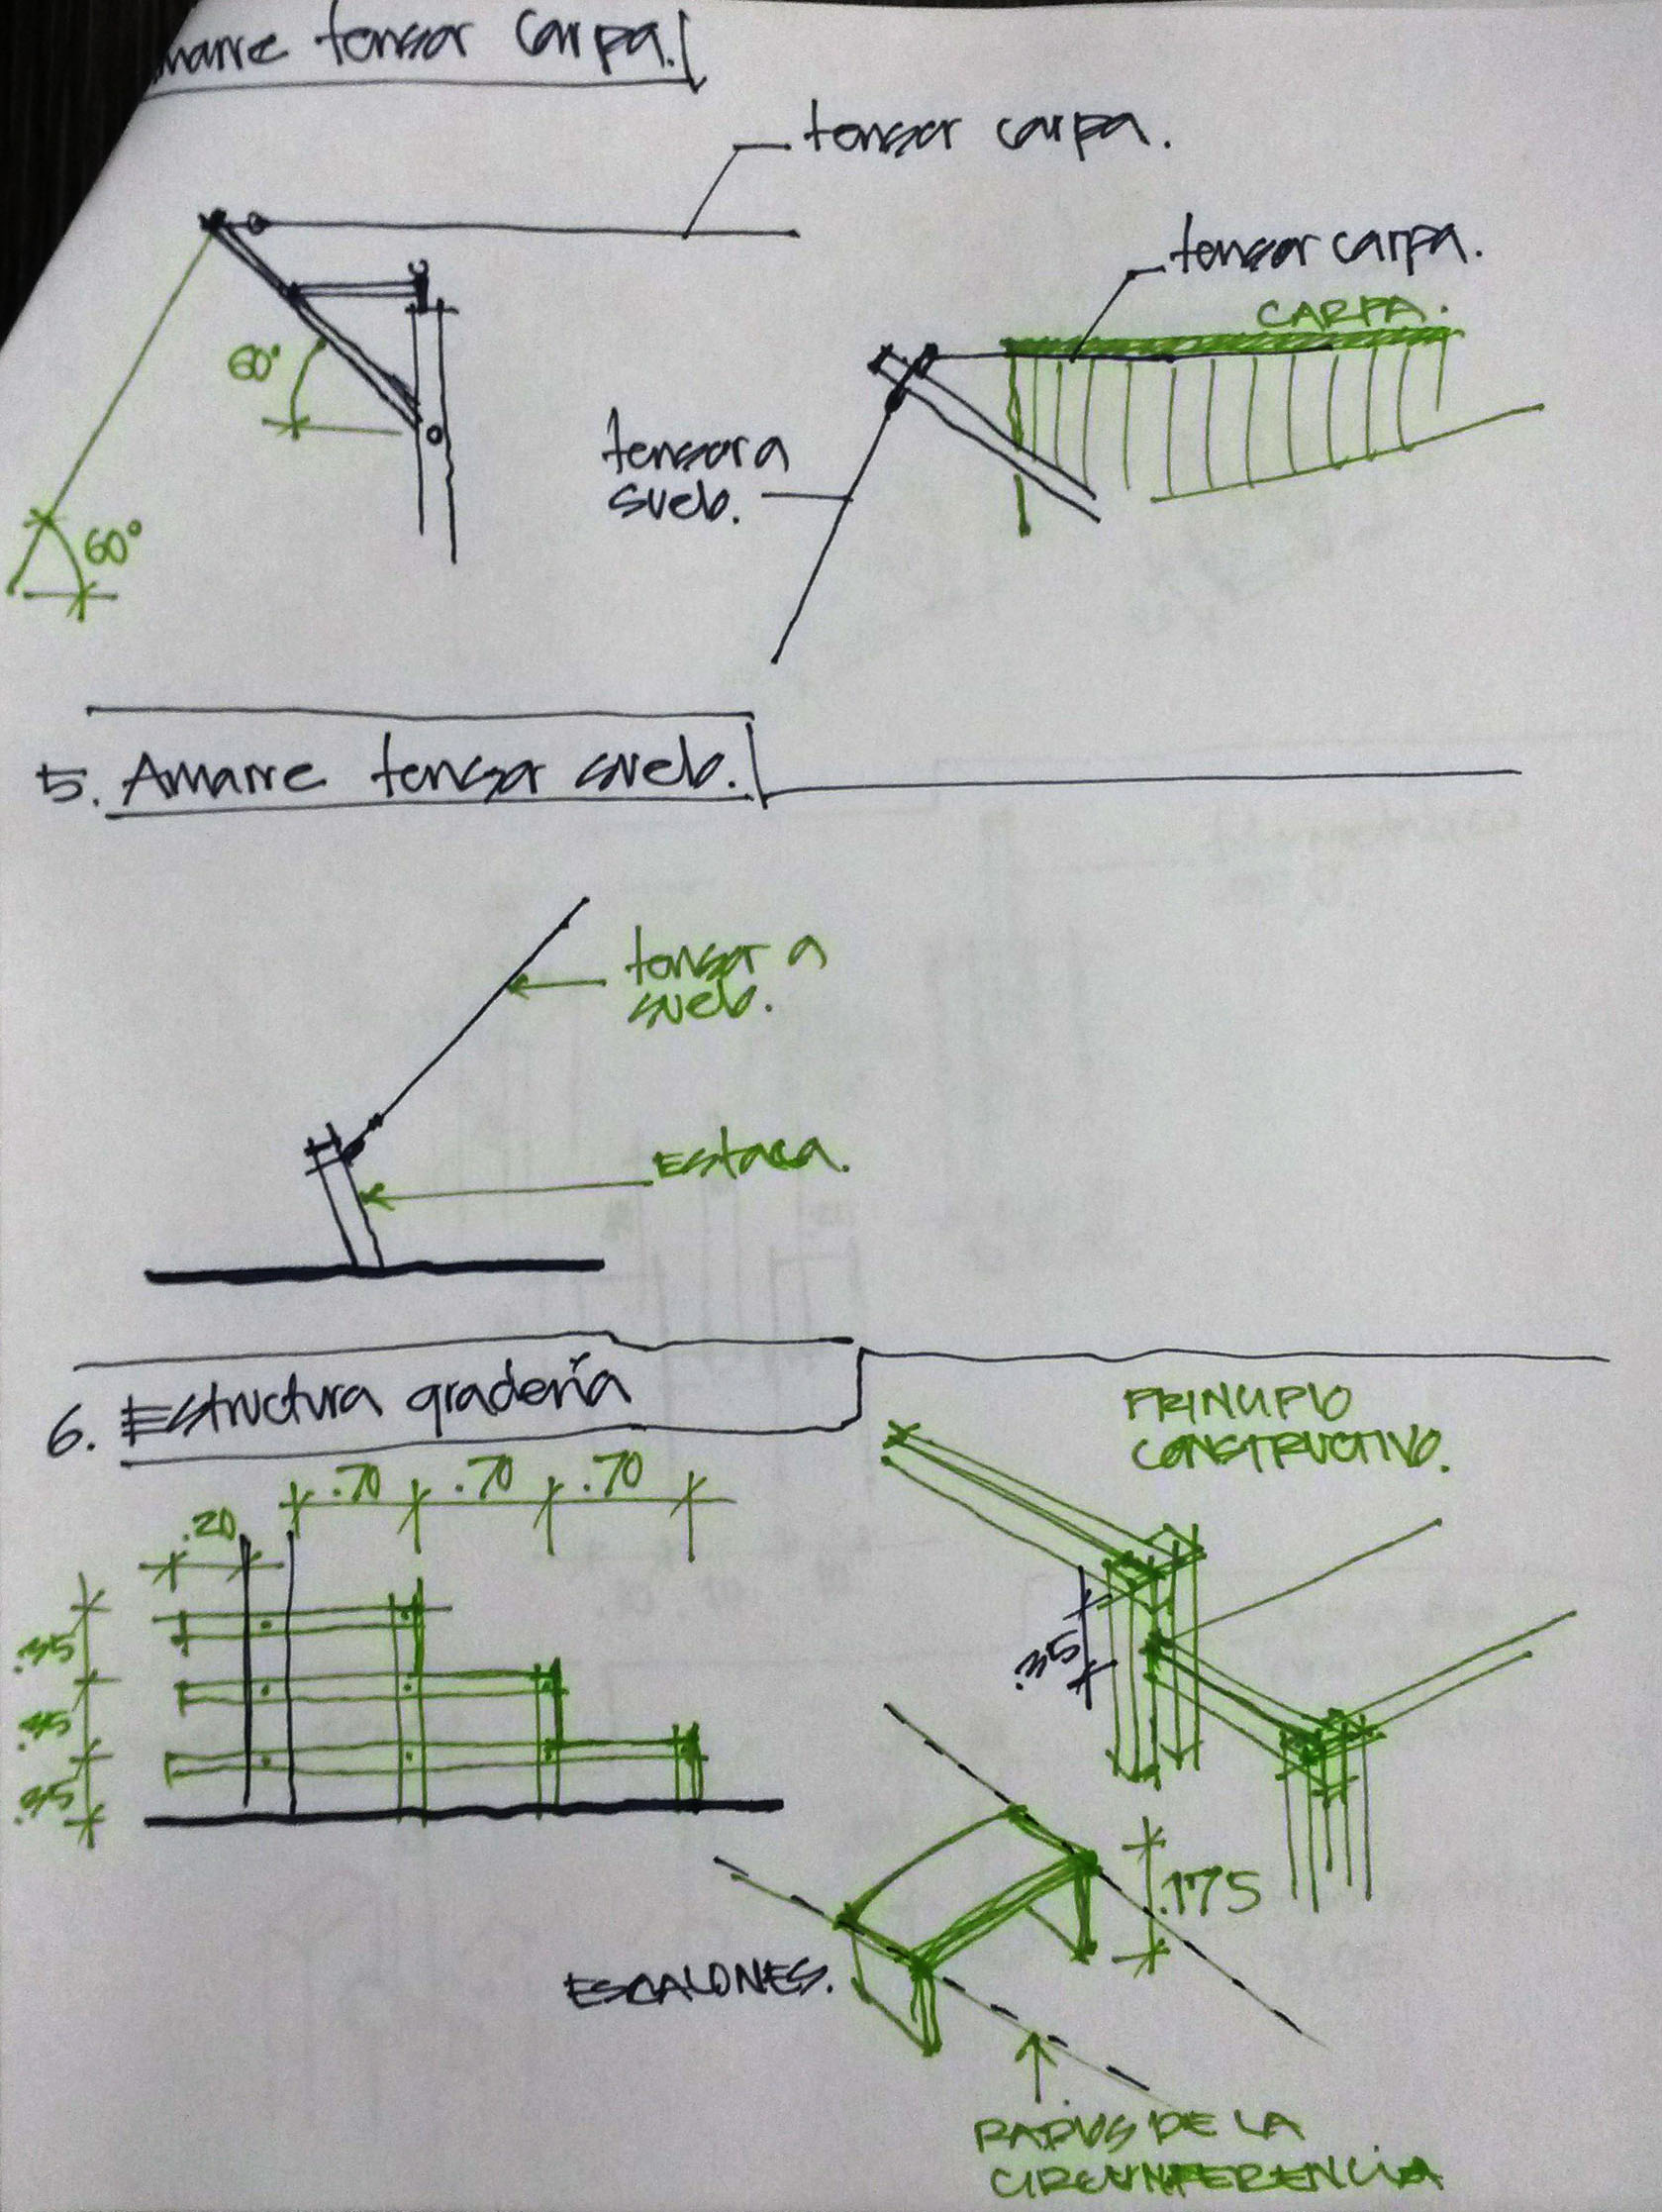 tensor carpa.
tensor carpa.
tensor carpa.
CARPA.
60°
60°
tensor a
suelo.
5. Amarre tensor suelo.
tensor a
suelo.
Estaca.
6. Estructura gradería
PRINCIPIO
CONSTRUCTIVO.
.70 .70 .70
.20
.35
.35
.35
.35
.175
ESCALONES.
RADIOS DE LA
CIRCUNFERENCIA